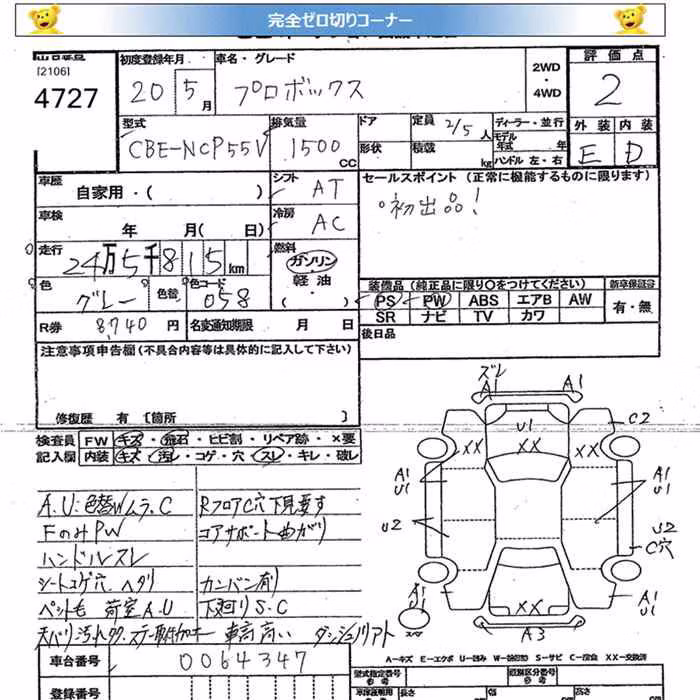 完全ゼロ切りコーナー
[2106]
4727
初度登録年月
20 5月
車名・グレード
プロボックス
2WD
・
4WD
評価点
2
型式
CBE-NCP55V
排気量
1500 CC
ドア
定員 2/5 人
ディーラー・並行
モデル
年式 年
形状
積載 kg
ハンドル 左・右
外装 内装
E D
車歴
自家用・( )
シフト
AT
セールスポイント (正常に機能するものに限ります)
初出品!
車検
年 月( 日)
冷房
AC
走行
24万5千815km
燃料
ガソリン
軽油
・
( )
色
グレー
色替
色コード
058
装備品 (純正品に限り○をつけてください)
新車保証書
PS PW ABS エアB AW
SR ナビ TV カワ
有・無
R券 8740 円
名変通知期限 月 日
後日品
注意事項申告欄 (不具合内容等は具体的に記入して下さい)
修復歴 有 [箇所 ]
検査員
記入欄
FW キズ・飛石・ヒビ割・リペア跡・×要
内装 キズ・汚レ・コゲ・穴・スレ・キレ・破レ
A.U:色替Wムラ.C
Rフロア C穴 下見要す
FのみPW
コアサポート曲がり
ハンドルスレ
シートコゲ穴.ヘタリ
カンバン有り
ペット毛 荷室A.U
下廻りS.C
車高高い
車台番号
0064347
登録番号
ズレ
A1 A1
U1
XX XX XX
C2
A1
U1
A1
U1
U2
U2
C穴
XX
A1
U1
A3
A-キズ E-エクボ U-凹み W-補修跡 S-サビ C-腐食 XX-交換済
型式指定番号
参考
類別区分番号
参考
長さ